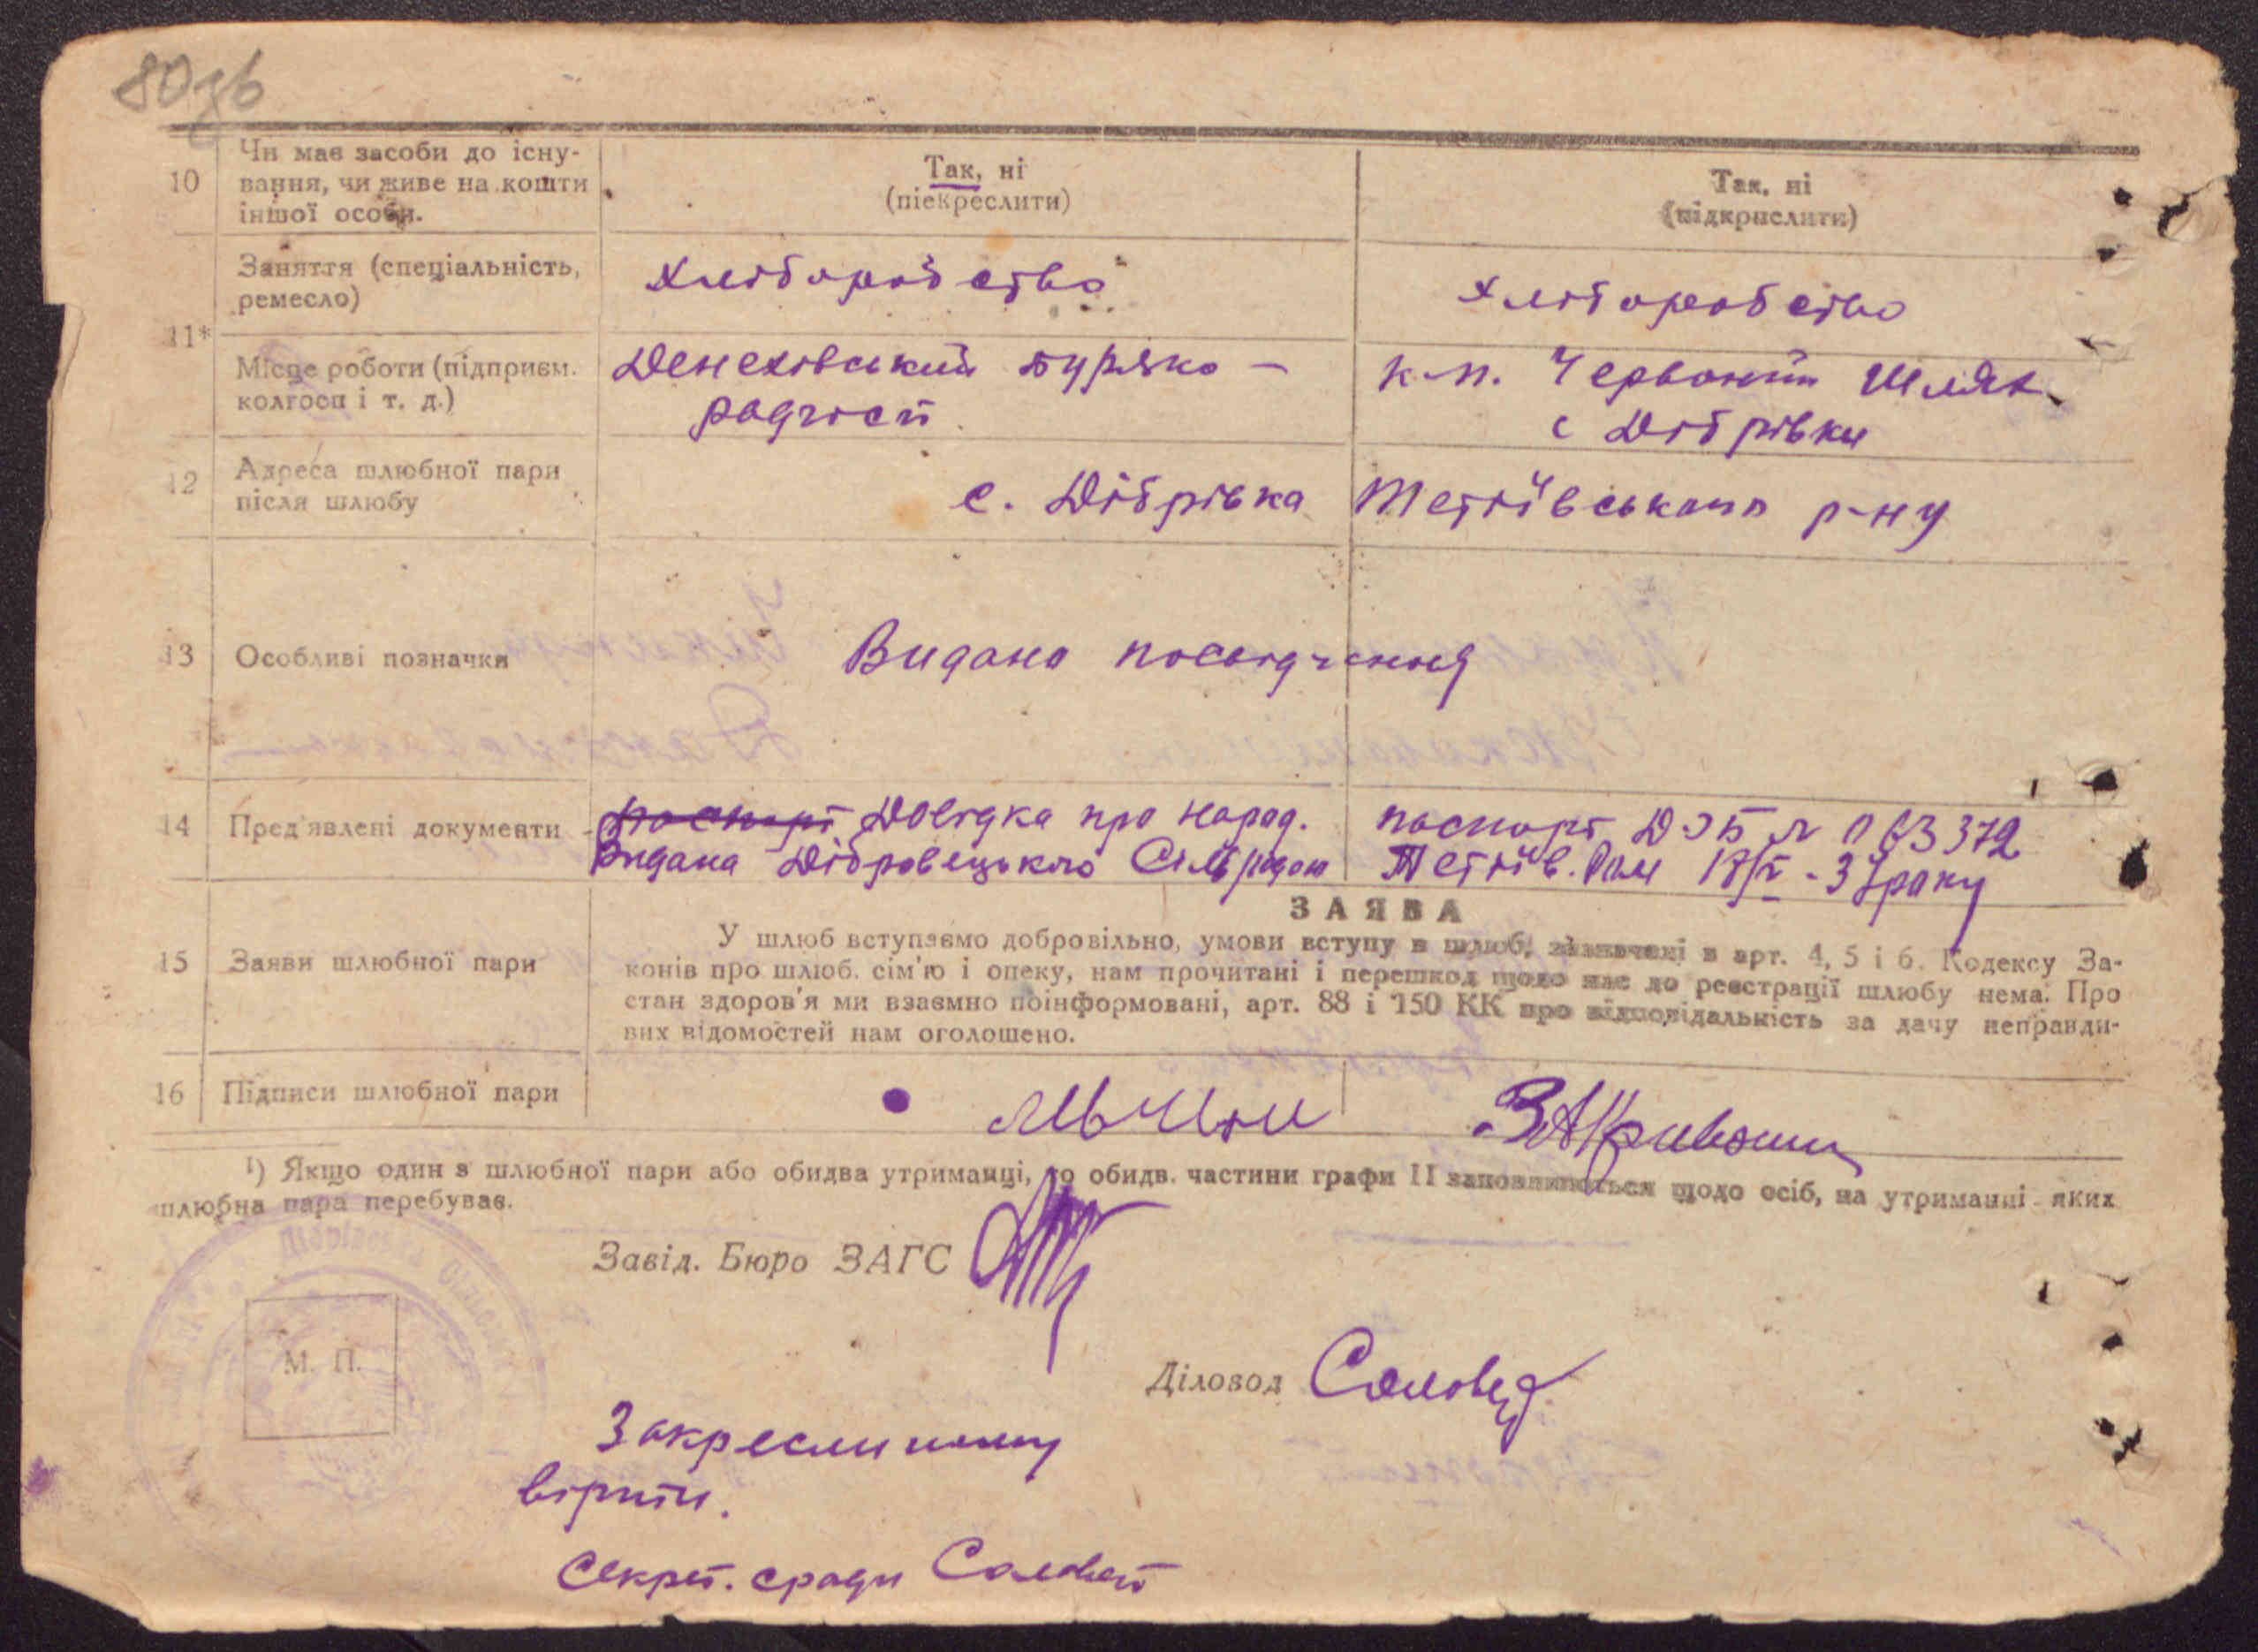 80зв
10
Чи має засоби до існу-
вання, чи живе на кошти
іншої особи.
Так, ні
(піекреслити)
Так, ні
(підкрислити)
11*
Заняття (спеціальність,
ремесло)
Хліборобство
Хліборобство
Місце роботи (підприєм.
колгосп і т. д.)
Денехівський буряко-
радгосп
к-п. Червоний Шлях
с Дібрівки
12
Адреса шлюбної пари
після шлюбу
с. Дібрівка Тетіївського р-ну
13
Особливі позначки
Видано посвідчення
14
Пред'явлені документи
паспорт Довідка про народ.
видана Дібровецькою Сільрадою
паспорт
Тетіїв.
року
15
Заяви шлюбної пари
ЗАЯВА
У шлюб вступаємо добровільно, умови вступу в шлюб, зазначені в арт. 4, 5 і 6. Кодексу За-
конів про шлюб. сім'ю і опеку, нам прочитані і перешкод щодо нас до реєстрації шлюбу нема. Про
стан здоров'я ми взаємно поінформовані, арт. 88 і 150 КК про відповідальність за дачу неправди-
вих відомостей нам оголошено.
16
Підписи шлюбної пари
¹) Якщо один з шлюбної пари або обидва утриманці, то обидв. частини графи 11 заповнюються щодо осіб, на утриманні яких
шлюбна пара перебуває.
Завід. Бюро ЗАГС
М. П.
Діловод
Закресленому
вірити.
Секрет. сради